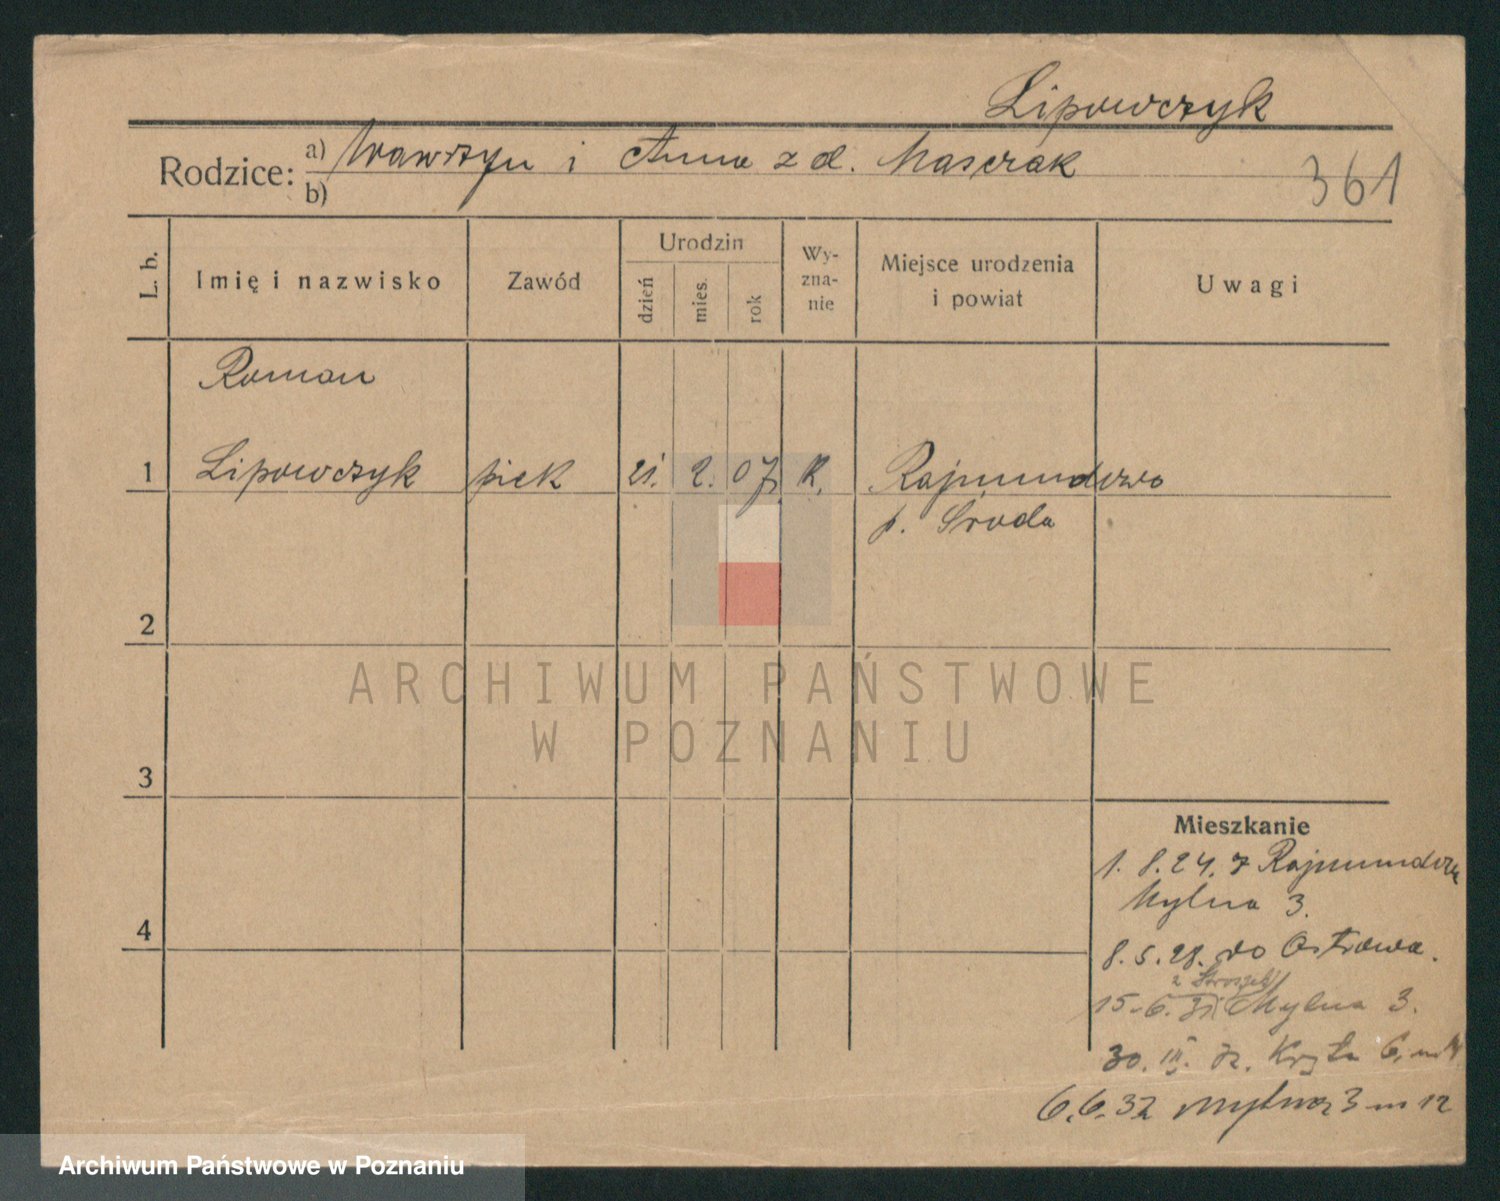 Lipowczyk
Rodzice: a) Wawrzyn i Anna z d. Maserak
b)
361
L. b.
Imię i nazwisko
Zawód
Urodzin
dzień
mies.
rok
Wy-
zna-
nie
Miejsce urodzenia
i powiat
Uwagi
Roman
1 Lipowczyk piek 21. 2. 07 K. Rajmundowo
p. Środa
2
3
4
Mieszkanie
1. 8. 24. z Rajmundowa
Mylna 3.
8. 5. 28. do Ostrowa.
15-6. 31 Mylna 3.
30. III. 32. 6,
6.6.32 Mylna 3 m 12
ARCHIWUM PAŃSTWOWE
W POZNANIU
Archiwum Państwowe w Poznaniu